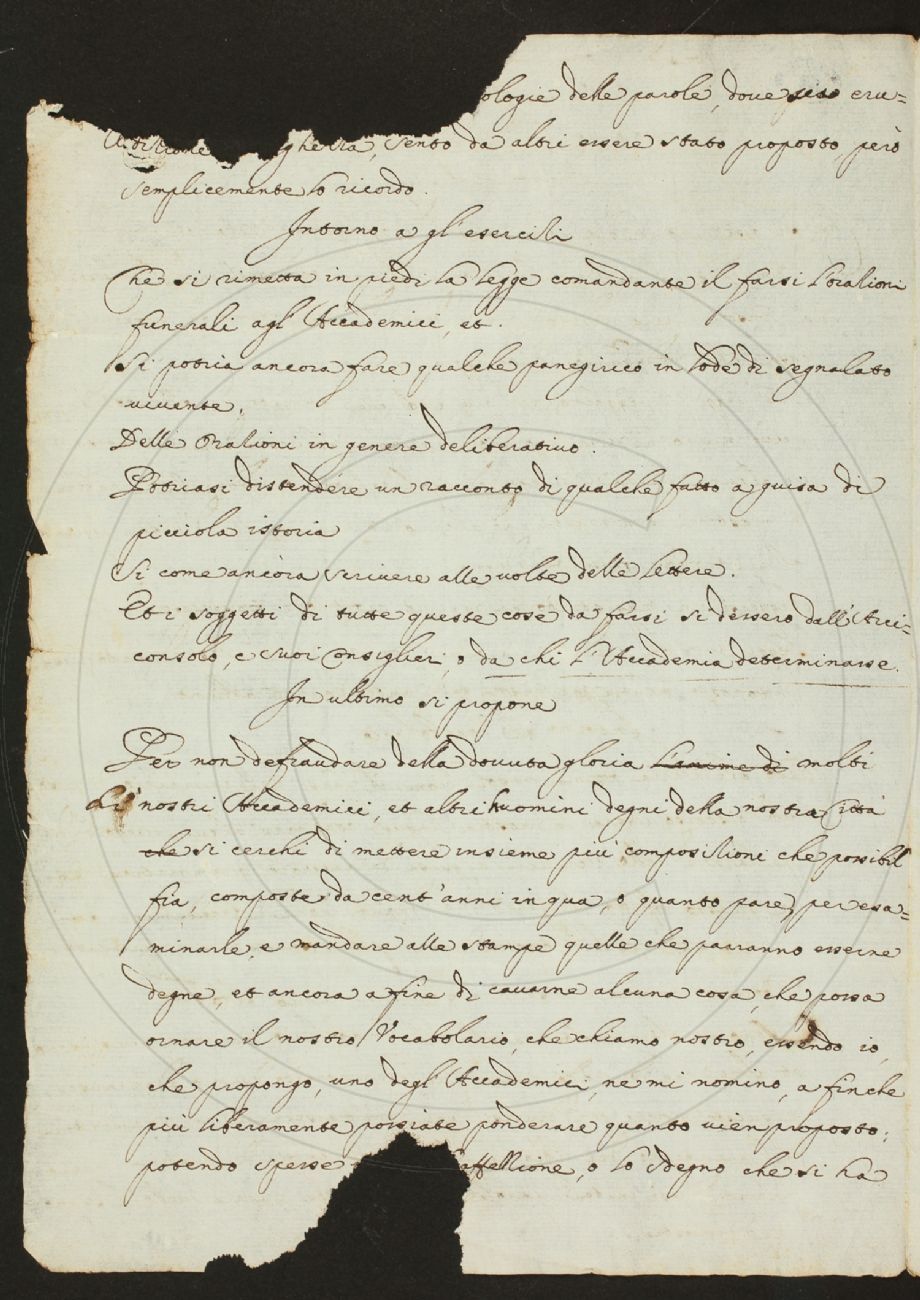 ologie delle parole, dove sia eru=
ditione ghezza, sento da altri essere stato proposto, però
semplicemente lo ricordo.
Intorno a gl'esercizi
Che si rimetta in piedi la legge comandante il farsi l'orazioni
funerali agl'Accademici, et.
Si potria ancora fare qualche panegirico in lode di segnalato
vivente.
Delle Orazioni in genere deliberativo.
Potriasi distendere un racconto di qualche fatto a guisa di
picciola istoria
Si come ancora scrivere alle volte delle lettere.
Et i soggetti di tutte queste cose da farsi si dessero dall'Arci=
consolo, e suoi Consiglieri, o da chi l'Accademia determinasse.
In ultimo si propone
Per non defraudare della dovuta gloria molti
nostri Accademici, et altri huomini degni della nostra Città
che si cerchi di mettere insieme più composizioni che possibil
fia, composte da cent'anni in qua, o quanto pare, per esa=
minarle, e mandare alle stampe quelle che parranno esserne
degne, et ancora a fine di cavarne alcuna cosa, che possa
ornare il nostro Vocabolario, che chiamo nostro, essendo io,
che propongo, uno degl'Accademici, ne mi nomino, a fin che
più liberamente possiate ponderare quanto vien proposto;
potendo spesse affezzione, o lo sdegno che si ha